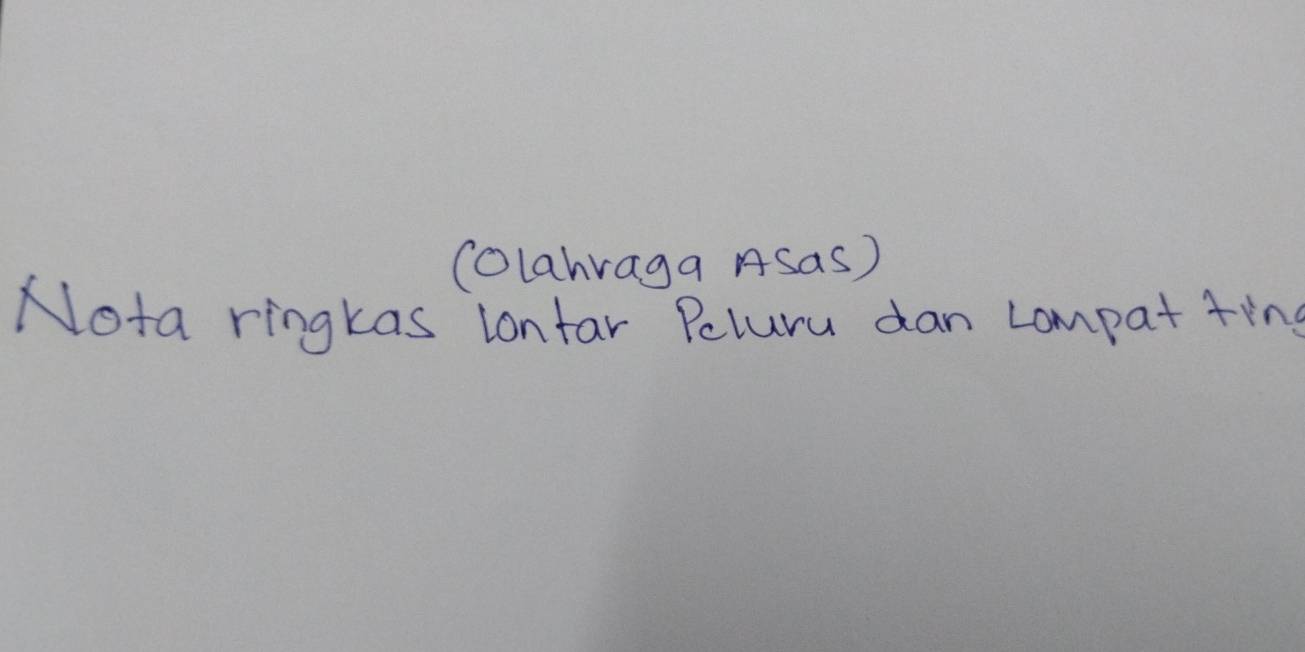 (Olahraga Asas)
Nota ringkas lontar Peluru dan Lompat ting